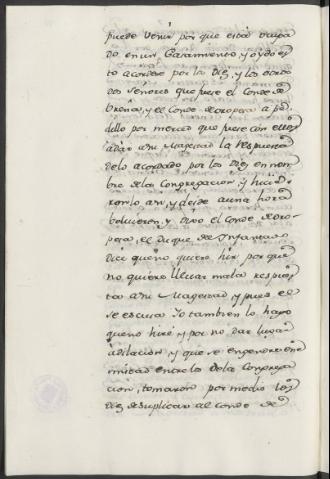 puede venir por que esta ocupa
do en un Casamiento, y oydo es
to acordose por los Diez, y los otros
dos señores que fuese el Conde de
Ureña, y el Conde de oropesa a pe
dillo por merced que fuese con ellos
a dar a su Magestad la respuesta
de lo acordado por los Diez en nom
bre de la Congregacion, y hicie
ronlo asi, y desde a una hora
bolvieron, y Dixo el Conde de oro
pesa, el Duque de Infantado
dice que no quiere hir, por que
no quiere llevar mala respues
ta a su Magestad, y pues el
se escusa Yo tambien lo hago
que no hiré, y por no dar lugar
a dilacion, y que se engendre ene
mistad entre los de la Congrega
cion, tomaron por medio los
Diez de suplicar al Conde de